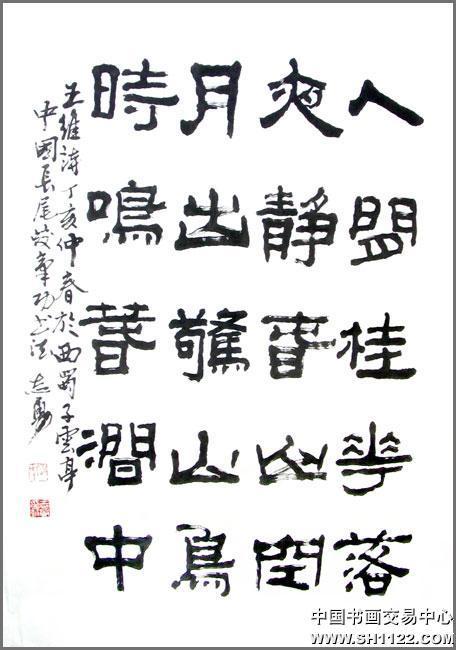 人閒桂花落
夜靜春山空
月出驚山鳥
時鳴春澗中
王維詩丁亥仲春於西蜀子雲亭
中國長尾 书法 志勇
中国书画交易中心
WWW.SH1122.COM